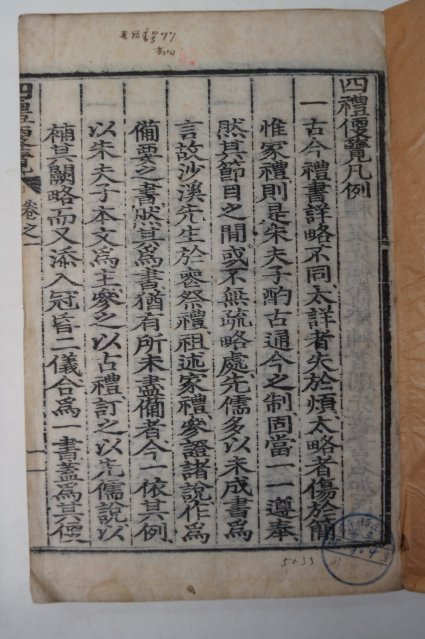 四禮便覽凡例
一古今禮書詳略不同太詳者失於煩太略者傷於簡
惟家禮則是朱夫子酌古通今之制固當一一遵奉
然其節目之間或不無疏略處先儒多以未成書爲
言故沙溪先生於喪祭禮祖述家禮參證諸說作爲
備要之書然其爲書猶有所未盡備者今一依其例
以朱夫子本文爲主參之以古禮訂之以先儒說以
補其闕略而又添入冠昏二儀合爲一書蓋爲其便
四禮便覽
卷之一
5033